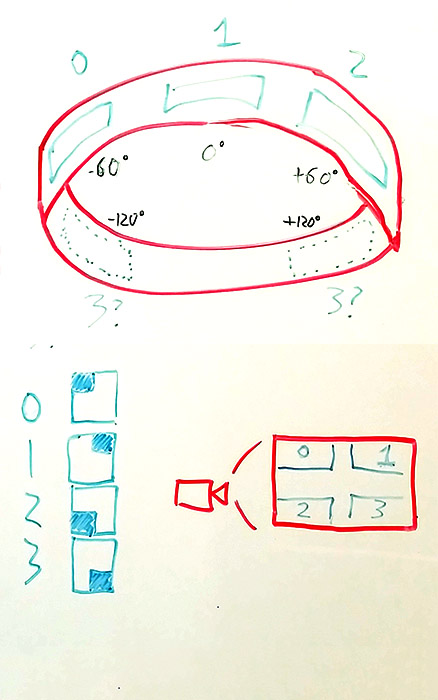 1
0
2
0°
-60°
+60°
-120°
+120°
3?
3?
0
1
2
3
0 1
2 3